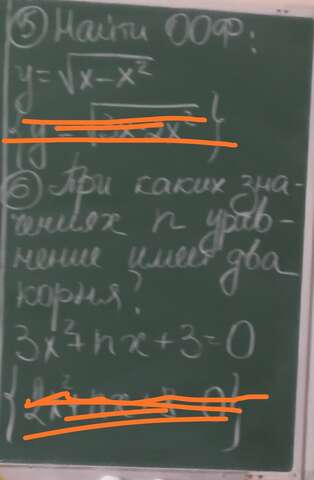 ⑤ Найти ООФ:
y = √x - x²
⑥ При каких зна-
чениях n урав-
нение имеет два
корня?
3x² + nx + 3 = 0